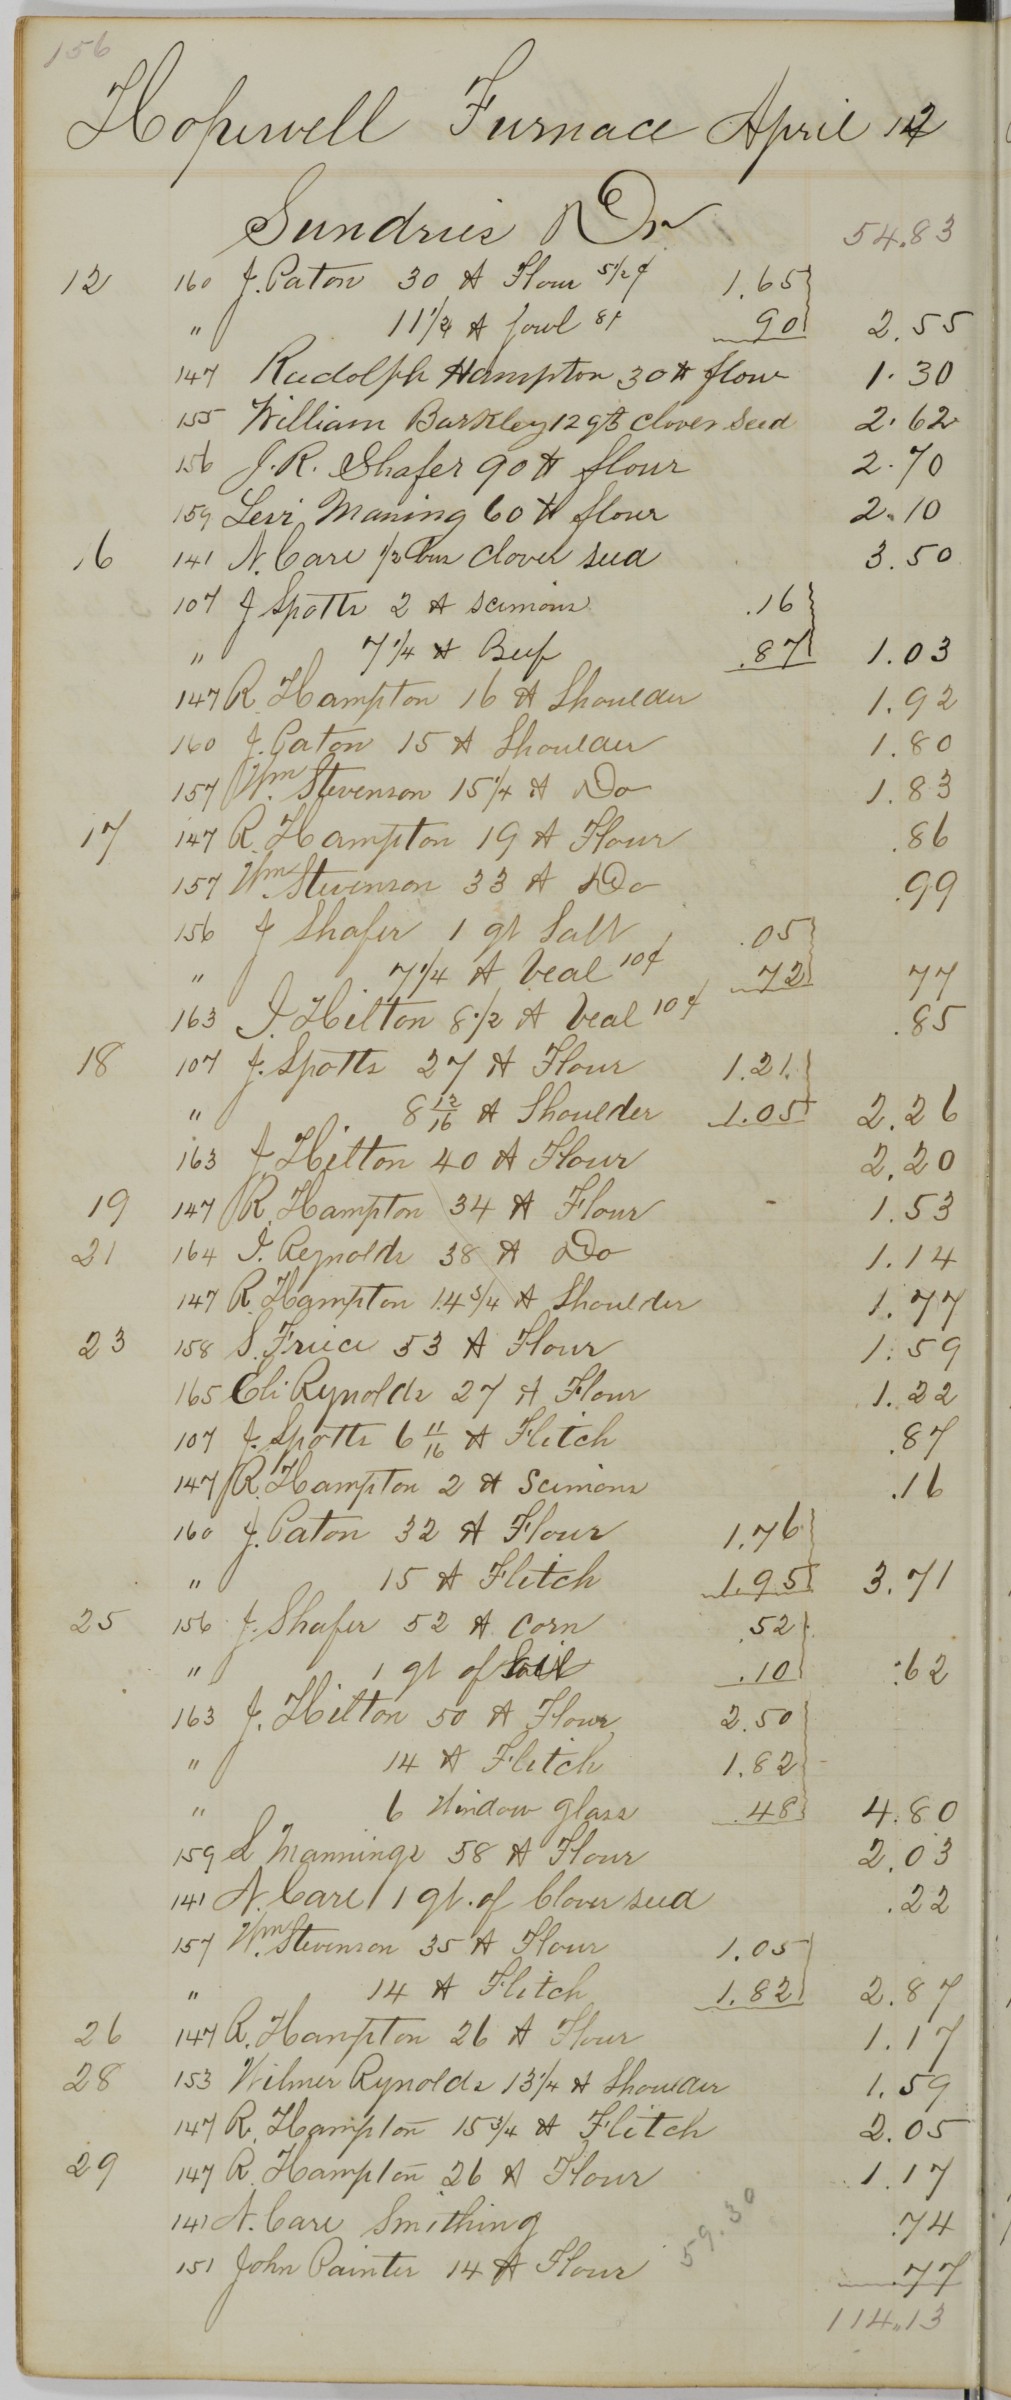 156
Hopewell Furnace April 12
Sundries Dr 54.83
12 160 J. Paton 30 ℔ Flour 5½¢ 1.65
" 11¼ ℔ fowl 8¢ 90 2.55
147 Rudolph Hampton 30 ℔ flour 1.30
155 William Barkley 12 qts clover seed 2.62
156 J. R. Shafer 90 ℔ flour 2.70
159 Levi Maning 60 ℔ flour 2.10
16 141 N. Care ½ bus clover seed 3.50
107 J Spotts 2 ℔ scimions .16
" 7¼ ℔ Beef .87 1.03
147 R. Hampton 16 ℔ Shoulder 1.92
160 J. Paton 15 ℔ Shoulder 1.80
157 Wm. Stevenson 15¼ ℔ Do 1.83
17 147 R. Hampton 19 ℔ Flour .86
157 Wm. Stevenson 33 ℔ Do .99
156 J Shafer 1 qt Salt .05
" 7¼ ℔ Veal 10¢ 72 77
163 J. Hilton 8½ ℔ Veal 10¢ .85
18 107 J. Spotts 27 ℔ Flour 1.21
" 8 12/16 ℔ Shoulder 1.05 2.26
163 J. Hilton 40 ℔ Flour 2.20
19 147 R. Hampton 34 ℔ Flour 1.53
21 164 I. Reynolds 38 ℔ Do 1.14
147 R. Hampton 14¾ ℔ Shoulder 1.77
23 158 S. Fricc 53 ℔ Flour 1.59
165 Eli Rynolds 27 ℔ Flour 1.22
107 J. Spotts 6 11/16 ℔ Flitch .87
147 R. Hampton 2 ℔ Scimions .16
160 J. Paton 32 ℔ Flour 1.76
" 15 ℔ Flitch 1.95 3.71
25 156 J. Shafer 52 ℔ corn .52
" 1 qt of .10 .62
163 J. Hilton 50 ℔ Flour 2.50
" 14 ℔ Flitch 1.82
" 6 Window glass .48 4.80
159 L Mannings 58 ℔ Flour 2.03
141 N. Care 1 qt. of Clover seed .22
157 Wm. Stevenson 35 ℔ Flour 1.05
" 14 ℔ Flitch 1.82 2.87
26 147 R. Hampton 26 ℔ Flour 1.17
28 153 Wilmer Rynolds 13¼ ℔ Shoulder 1.59
147 R. Hampton 15¾ ℔ Flitch 2.05
29 147 R. Hampton 26 ℔ Flour 1.17
141 N. Care Smithing .74
59.30
151 John Painter 14 ℔ Flour .77
114.13